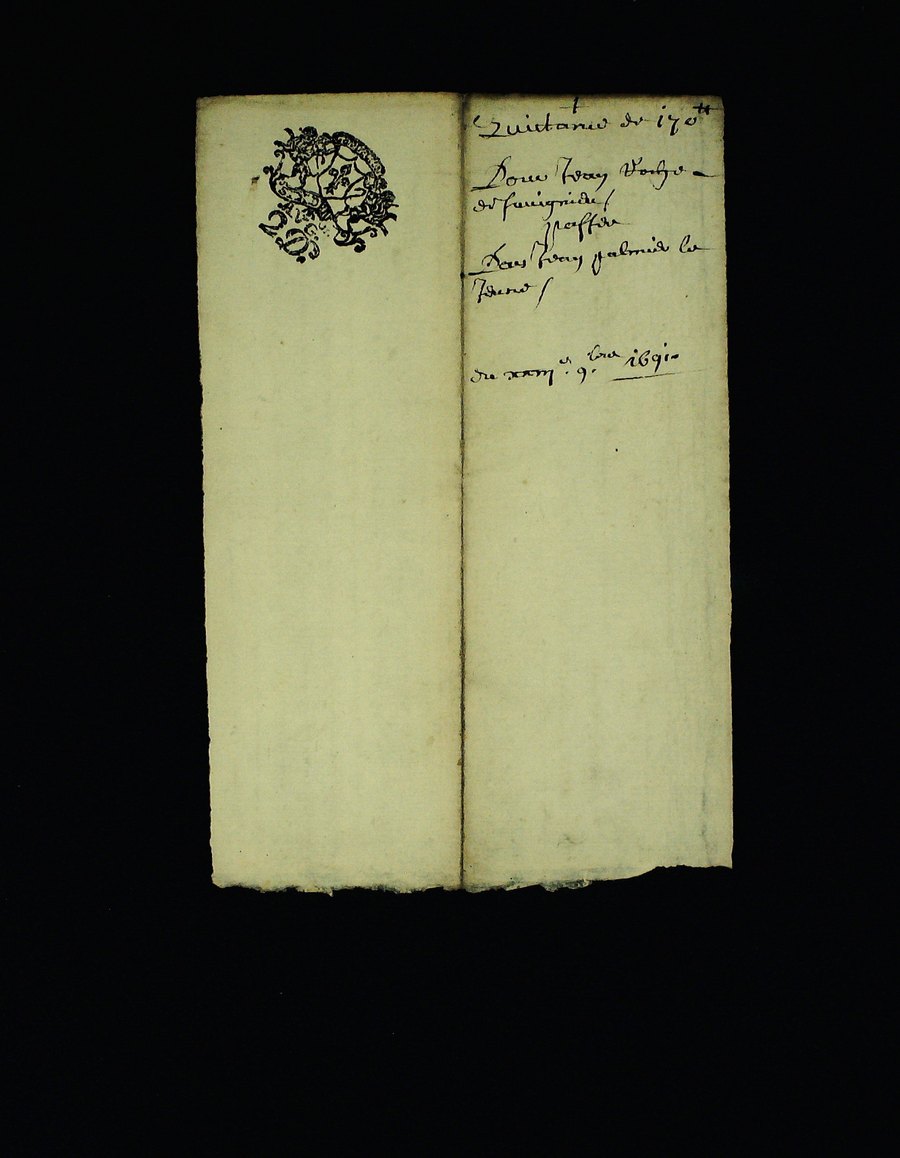 Quittance de 170 ₶
Pour Jean Roche
de
passée
Par Jean palmier le
Jeune /
du xxiii e. 9. bre 1691.